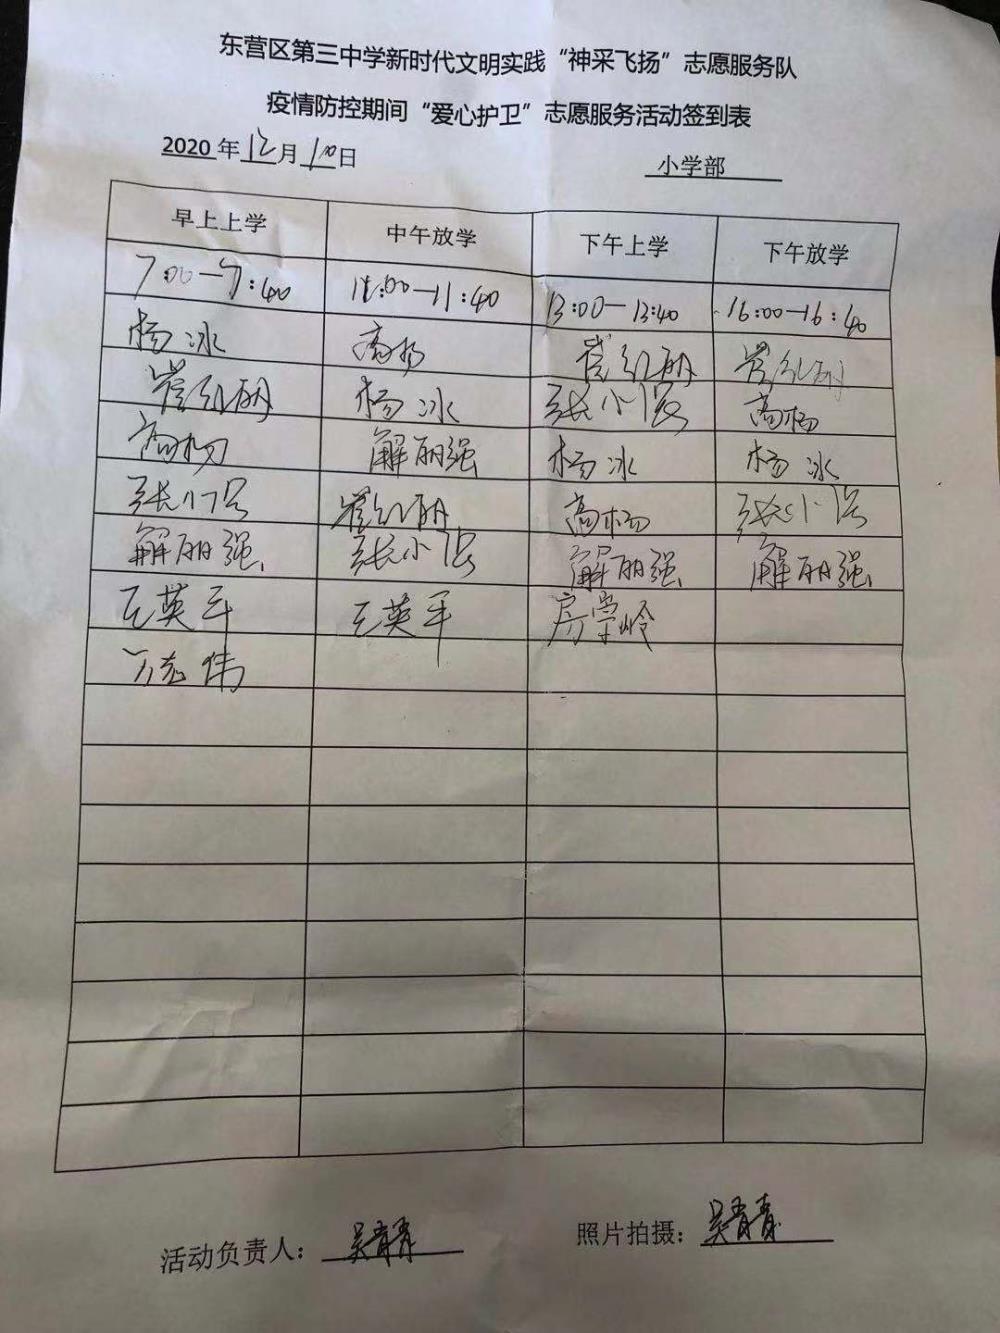 东营区第三中学新时代文明实践“神采飞扬”志愿服务队
疫情防控期间“爱心护卫”志愿服务活动签到表
2020年12月10日 小学部
早上上学 中午放学 下午上学 下午放学
7:00—7:40 11:00—11:40 13:00—13:40 16:00—16:40
杨冰 高杨 崔红丽 崔红丽
崔红丽 杨冰 张小 高杨
高杨 解丽强 杨冰 杨冰
张小 崔红丽 高杨 张小
解丽强 张小 解丽强 解丽强
王英军 王英军 房学岭
伟
活动负责人：吴青青 照片拍摄：吴青青